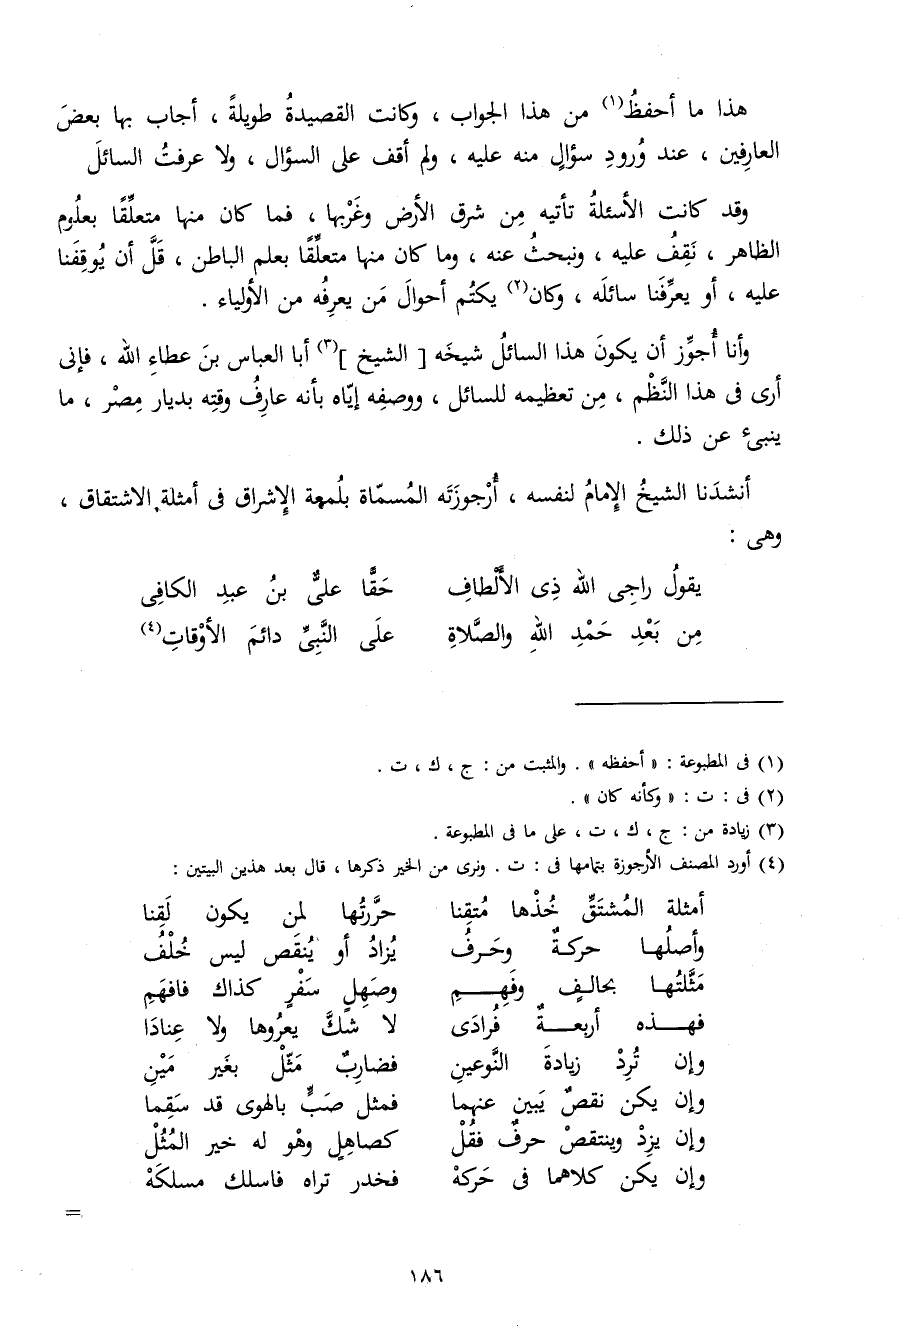 هذا ما أحفظُ(١) من هذا الجواب ، وكانت القصيدةُ طويلةً ، أجاب بها بعضَ
العارِفين ، عند وُرودِ سؤالٍ منه عليه ، ولم أقف على السؤال ، ولا عرفتُ السائلَ
وقد كانت الأسئلةُ تأتيه مِن شرق الأرض وغَرْبِها ، فما كان منها متعلِّقًا بعلُومِ
الظاهر ، نَقِفُ عليه ، ونبحثُ عنه ، وما كان منها متعلِّقًا بعلم الباطن ، قَلَّ أن يُوقِفَنا
عليه ، أو يعرِّفَنا سائلَه ، وكان(٢) يكتُم أحوالَ مَن يعرِفُه من الأولياء .
وأنا أُجوِّز أن يكونَ هذا السائلُ شيخَه [ الشيخ ](٣) أبا العباس بنَ عطاءِ الله ، فإنى
أرى فى هذا النَّظْم ، مِن تعظيمه للسائل ، ووصفِه إيّاه بأنه عارِفُ وقتِه بديار مِصْر ، ما
ينبىء عن ذلك .
أنشدَنا الشيخُ الإمامُ لنفسه ، أُرْجوزَتَه المُسمّاة بلُمعة الإشراق فى أمثلة الاشتقاق ،
وهى :
يقولُ راجِى الله ذِى الأَلْطافِ حَقًّا علىُّ بنُ عبدِ الكافِى
مِن بَعْدِ حَمْدِ اللهِ والصَّلاةِ علَى النَّبِىِّ دائمَ الأوْقاتِ(٤)
(١) فى المطبوعة : « أحفظه » . والمثبت من : ج ، ك ، ت .
(٢) فى : ت : « وكأنه كان » .
(٣) زيادة من : ج ، ك ، ت ، على ما فى المطبوعة .
(٤) أورد المصنف الأرجوزة بتمامها فى : ت . ونرى من الخير ذكرها ، قال بعد هذين البيتين :
أمثلة المُشتَقِّ خُذْها مُتقِنا حرَّرتُها لمن يكون لَقِنا
وأصلُها حركةٌ وحَرفُ يُزادُ أو يُنقَص ليس خُلْفُ
مَثَّلتُها بحالفٍ وفَهِمِ وصهِلٍ سَفْرٍ كذاك فافهَمِ
فهذه أربعةٌ فُرادَى لا شكَّ يعرُوها ولا عِنادَا
وإن تُرِدْ زيادةَ النَّوعينِ فضارِبٌ مَثّلْ بغَير مَيْنِ
وإن يكن نقصٌ يَبين عنهما فمثل صَبٍّ بالهوى قد سَقِما
وإن يزِدْ وينتقصْ حرفٌ فقُلْ كصاهِلٍ وهْو له خير المُثُلْ
وإن يكن كلاهما فى حَركهْ فخدر تراه فاسلك مسلكَهْ
=
١٨٦